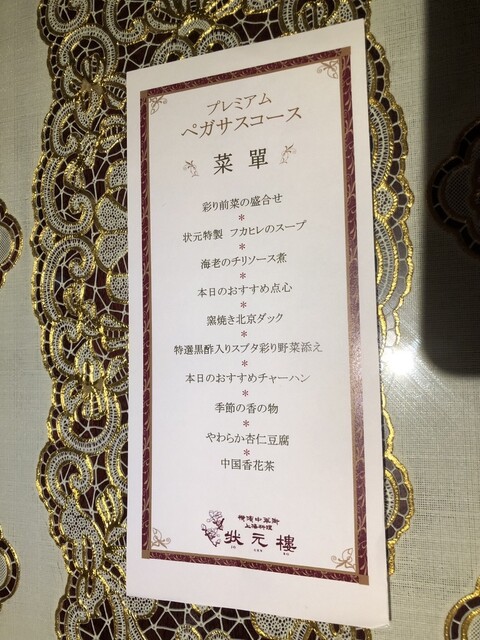 プレミアム
ペガサスコース
菜單
彩り前菜の盛合せ
*
状元特製 フカヒレのスープ
*
海老のチリソース煮
*
本日のおすすめ点心
*
窯焼き北京ダック
*
特選黒酢入りスブタ彩り野菜添え
*
本日のおすすめチャーハン
*
季節の香の物
*
やわらか杏仁豆腐
*
中国香花茶
横濱中華街
上海料理
状元樓